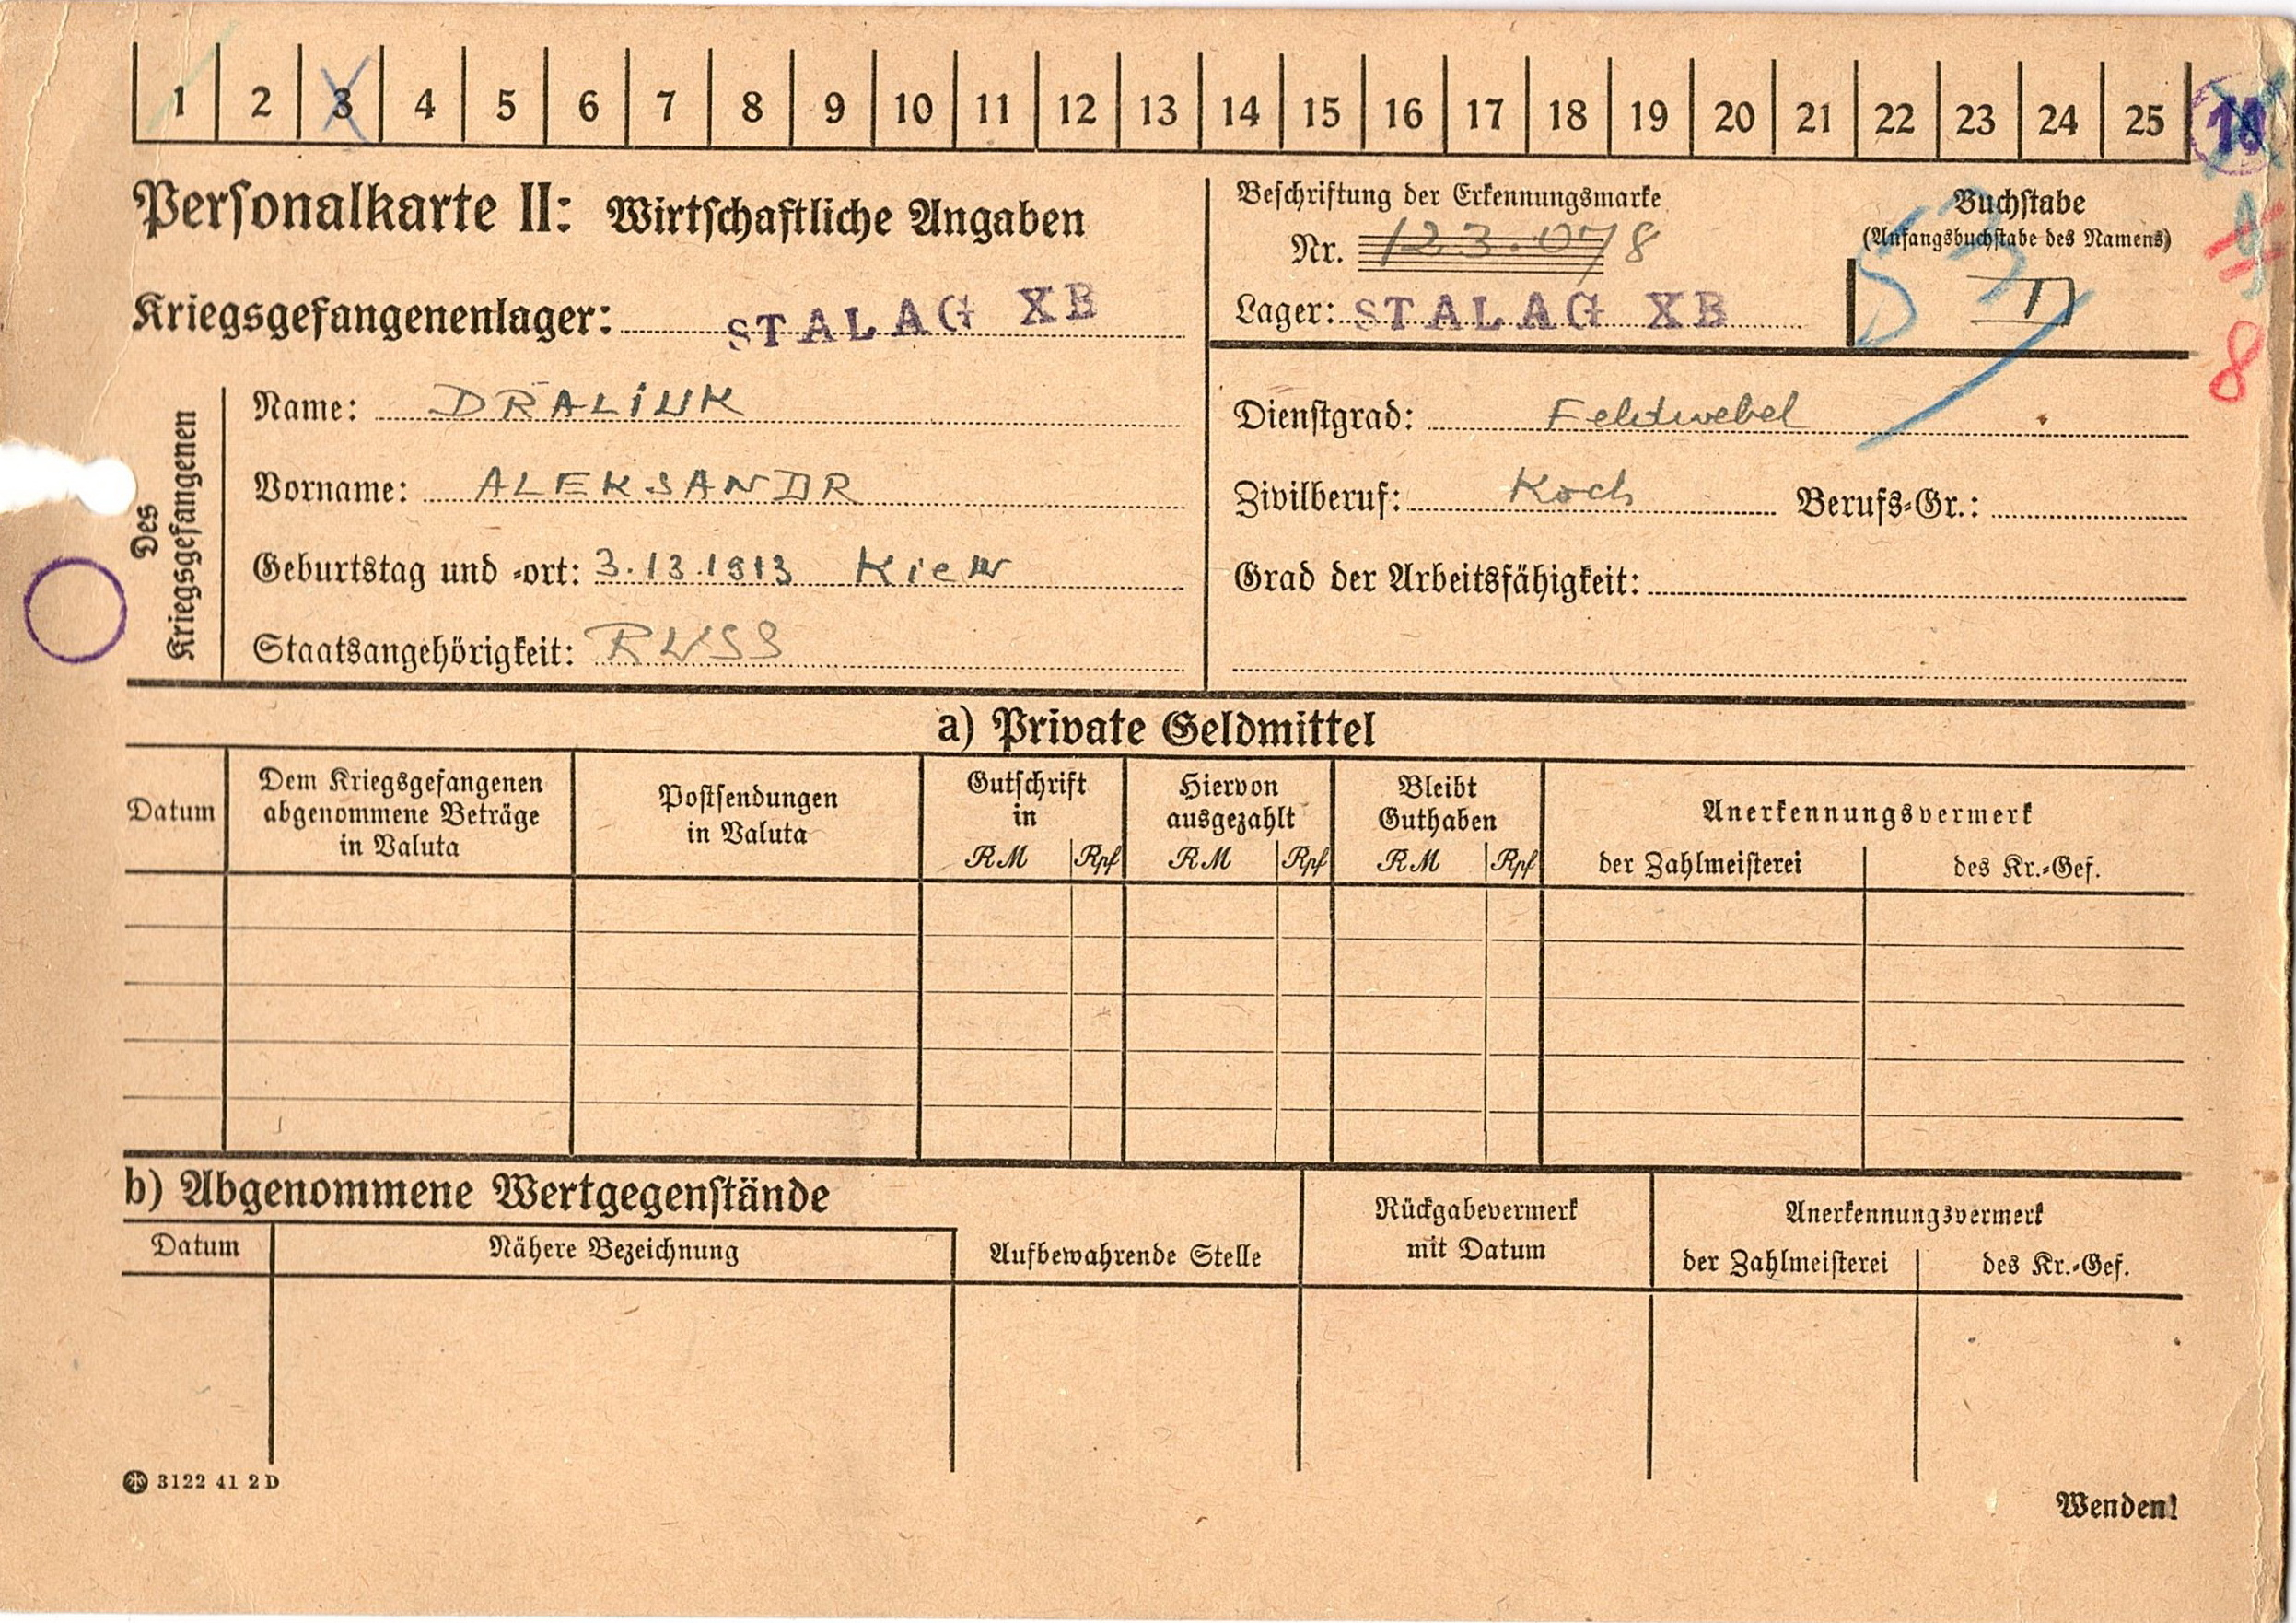 1 2 3 4 5 6 7 8 9 10 11 12 13 14 15 16 17 18 19 20 21 22 23 24 25
Personalkarte II: Wirtschaftliche Angaben
Kriegsgefangenenlager: STALAG XB
Beschriftung der Erkennungsmarke
Nr. 123.078
Lager: STALAG XB
Buchstabe
(Anfangsbuchstabe des Namens)
D
8
Des Kriegsgefangenen
Name: DRALIUK
Vorname: ALEKSANDR
Geburtstag und -ort: 3.13.1913 Kiew
Staatsangehörigkeit: RUSS
Dienstgrad: Feldwebel
Zivilberuf: Koch Berufs-Gr.:
Grad der Arbeitsfähigkeit:
a) Private Geldmittel
Datum
Dem Kriegsgefangenen
abgenommene Beträge
in Valuta
Postsendungen
in Valuta
Gutschrift
in
RM Rpf
Hiervon
ausgezahlt
RM Rpf
Bleibt
Guthaben
RM Rpf
Anerkennungsvermerk
der Zahlmeisterei des Kr.-Gef.
b) Abgenommene Wertgegenstände
Datum
Nähere Bezeichnung
Aufbewahrende Stelle
Rückgabevermerk
mit Datum
Anerkennungsvermerk
der Zahlmeisterei des Kr.-Gef.
3122 41 2 D
Wenden!